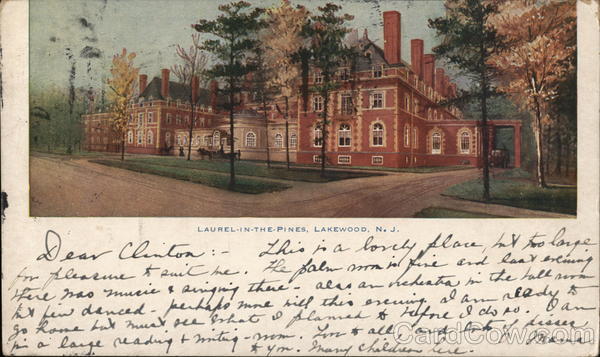 LAUREL-IN-THE-PINES, LAKEWOOD, N. J.
Dear Clinton :- This is a lovely place, but too large
for pleasure to suit me. The palm room is fine and last evening
there was music & singing there - also an orchestra in the ball room
but few danced - perhaps more will this evening. I am ready to
go home but must see what I planned to before I do so. I am
in a large reading & writing-room. Love to all, and lots of kisses
to you. Many children here.
CardCow.com